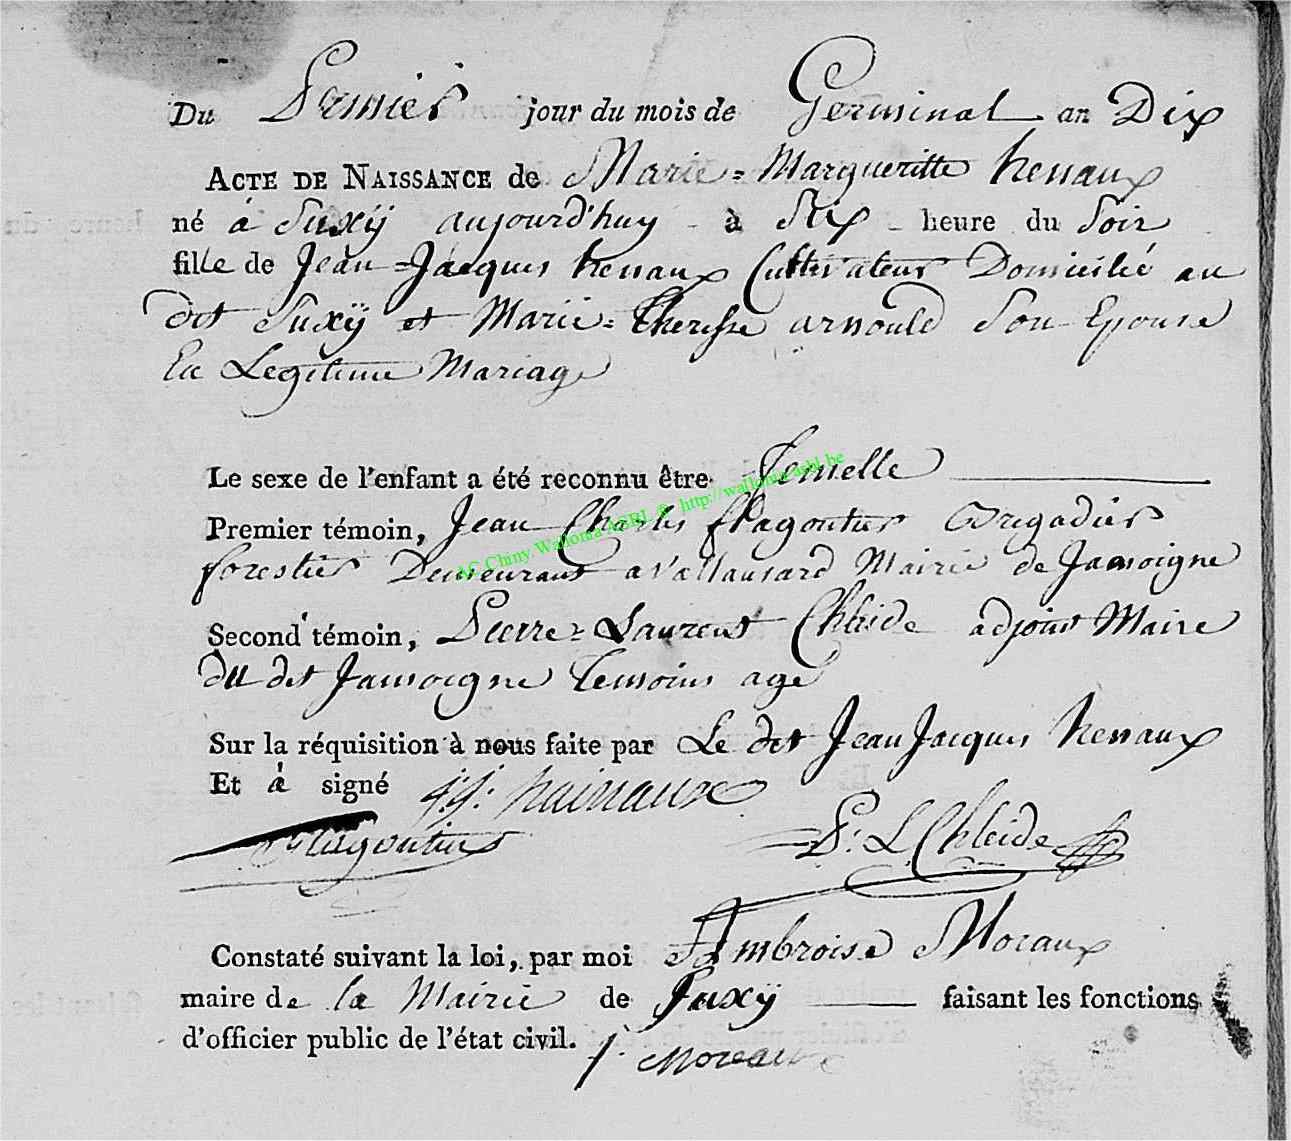 Du Premier jour du mois de Germinal an Dix
ACTE DE NAISSANCE de Marie = Margueritte henaux
né à Suxÿ aujourd'huy à Six heure du Soir
fille de Jean = Jacques henaux Cultivateur Domicilié au
dit Suxÿ et Marie = Theresse arnould Son Epouse
En Legitime Mariage
Le sexe de l'enfant a été reconnu être Femelle
Premier témoin, Jean Charles Brigadier
forestier Demeurant a Mairie de Jamoigne
Second témoin, Pierre = Laurent Chleide adjoint Maire
du dit Jamoigne Temoins agé
Sur la réquisition à nous faite par Le dit Jean Jacques henaux
Et à signé j: j: hainaux
P: L Chleide
Constaté suivant la loi, par moi Ambroise Moraux
maire de la Mairie de Suxÿ faisant les fonctions
d'officier public de l'état civil. Moreaux
AC Chiny Wallonia ASBL © http://wallonia-asbl.be